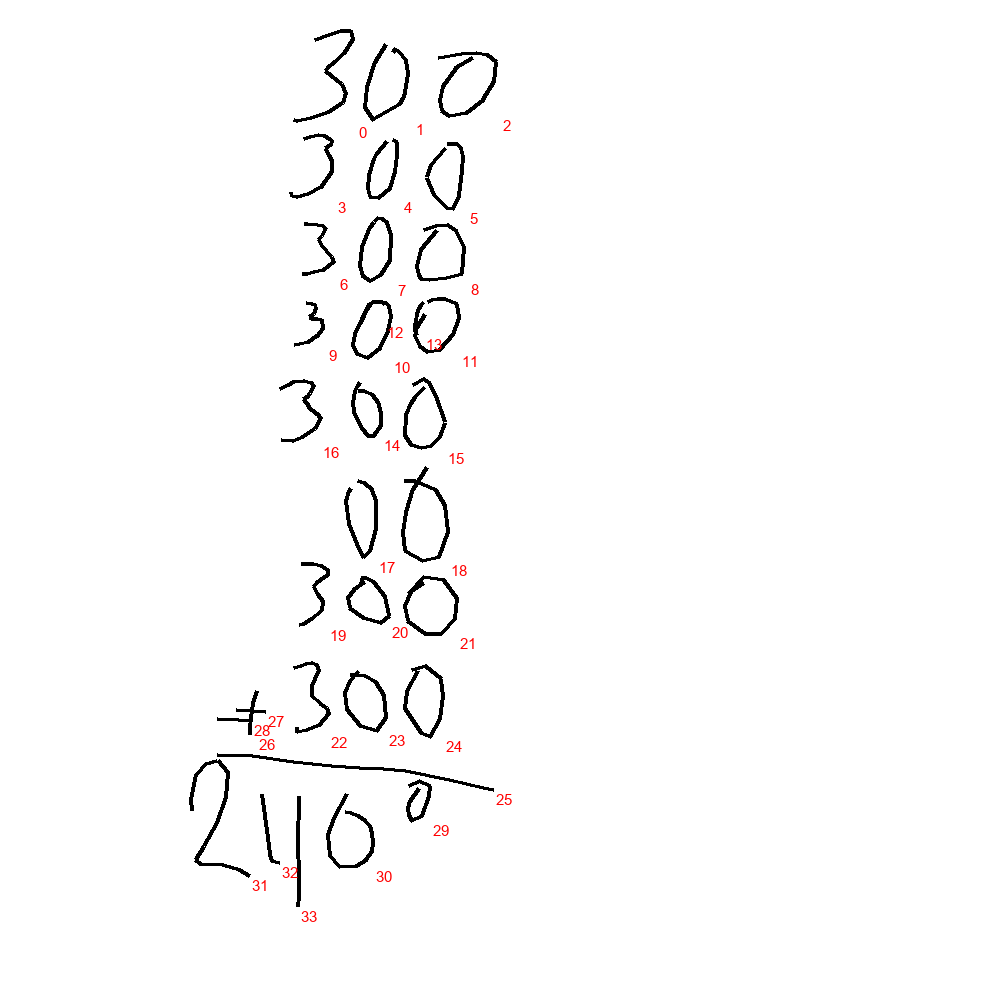 300
0 1 2
300
3 4 5
300
6 7 8
300
12 13
9 10 11
300
16 14 15
00
17 18
300
19 20 21
+ 300
27
28
26 22 23 24
25
2400
29
32 30
31
33